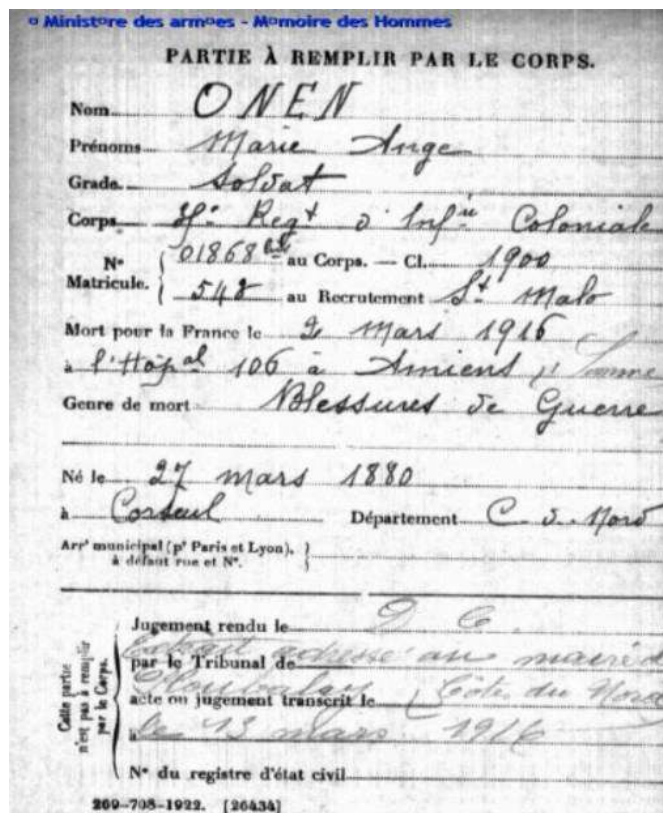 ¤ Minist¤re des arm¤es - M¤moire des Hommes
PARTIE À REMPLIR PAR LE CORPS.
Nom ONEN
Prénoms Marie Ange
Grade Soldat
Corps Regt d'Infie Coloniale
No Matricule. { 01868 au Corps. — Cl. 1900
548 au Recrutement St Malo
Mort pour la France le 2 Mars 1916
à l'Hôpal 106 à Amiens Somme
Genre de mort Blessures de Guerre
Né le 27 mars 1880
à Corseul Département C. d. Nord
Arrt municipal (pr Paris et Lyon), }
à défaut rue et No.
Cette partie n'est pas à remplir par le Corps.
Jugement rendu le D C
Extrait adressé au maire d
par le Tribunal de
Ploubalay (Côtes du Nord
acte ou jugement transcrit le
à le 13 mars 1916
No du registre d'état civil
269-708-1922. [26434]